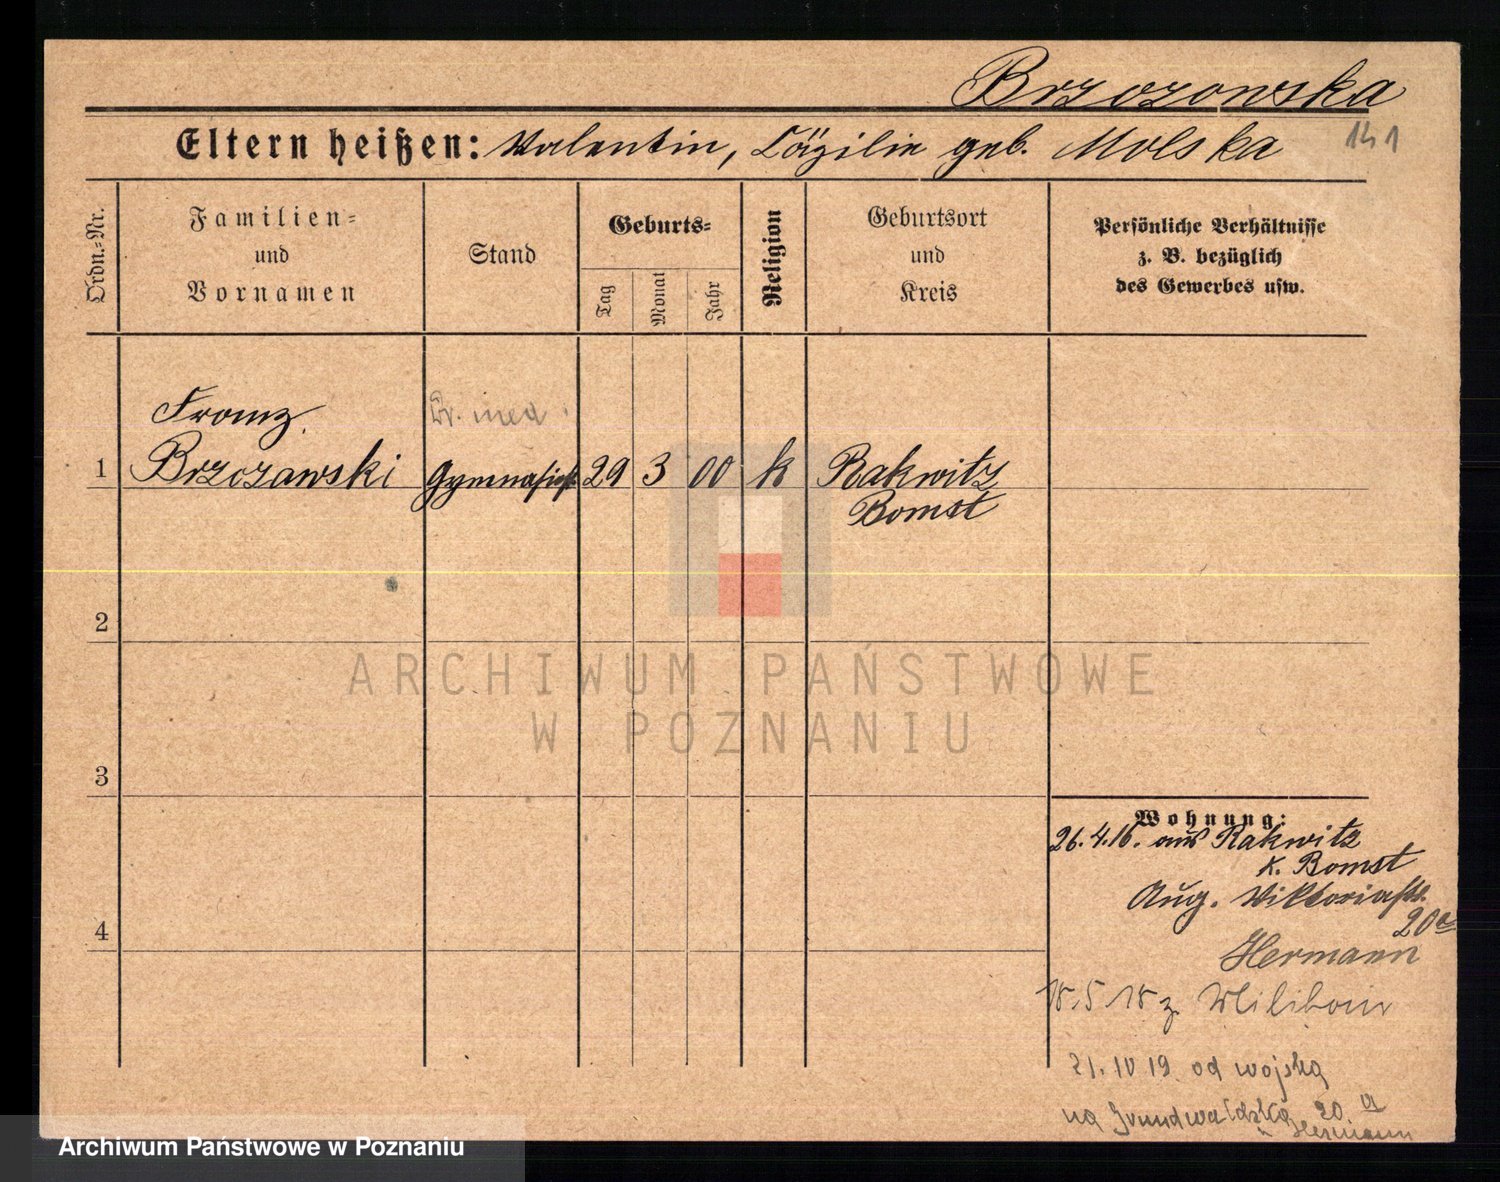 Brzozowska
Eltern heißen: Valentin, Cäzilie geb. Molska
141
Ordn.-Nr.
Familien-
und
Vornamen
Stand
Geburts-
Tag
Monat
Jahr
Religion
Geburtsort
und
Kreis
Persönliche Verhältnisse
z. B. bezüglich
des Gewerbes usw.
Franz
Dr. med.
1 Brzozowski Gymnasiast 29 3 00 k Rakwitz
Bomst
2
ARCHIWUM PAŃSTWOWE
W POZNANIU
3
Wohnung:
26.4.16. aus Rakwitz
K. Bomst
Aug. Viktoriastr.
20a
4
Hermann
18.5.18 z. Militär
21. IV 19. od wojska
na Grunwaldzką 20 a
Hermann
Archiwum Państwowe w Poznaniu